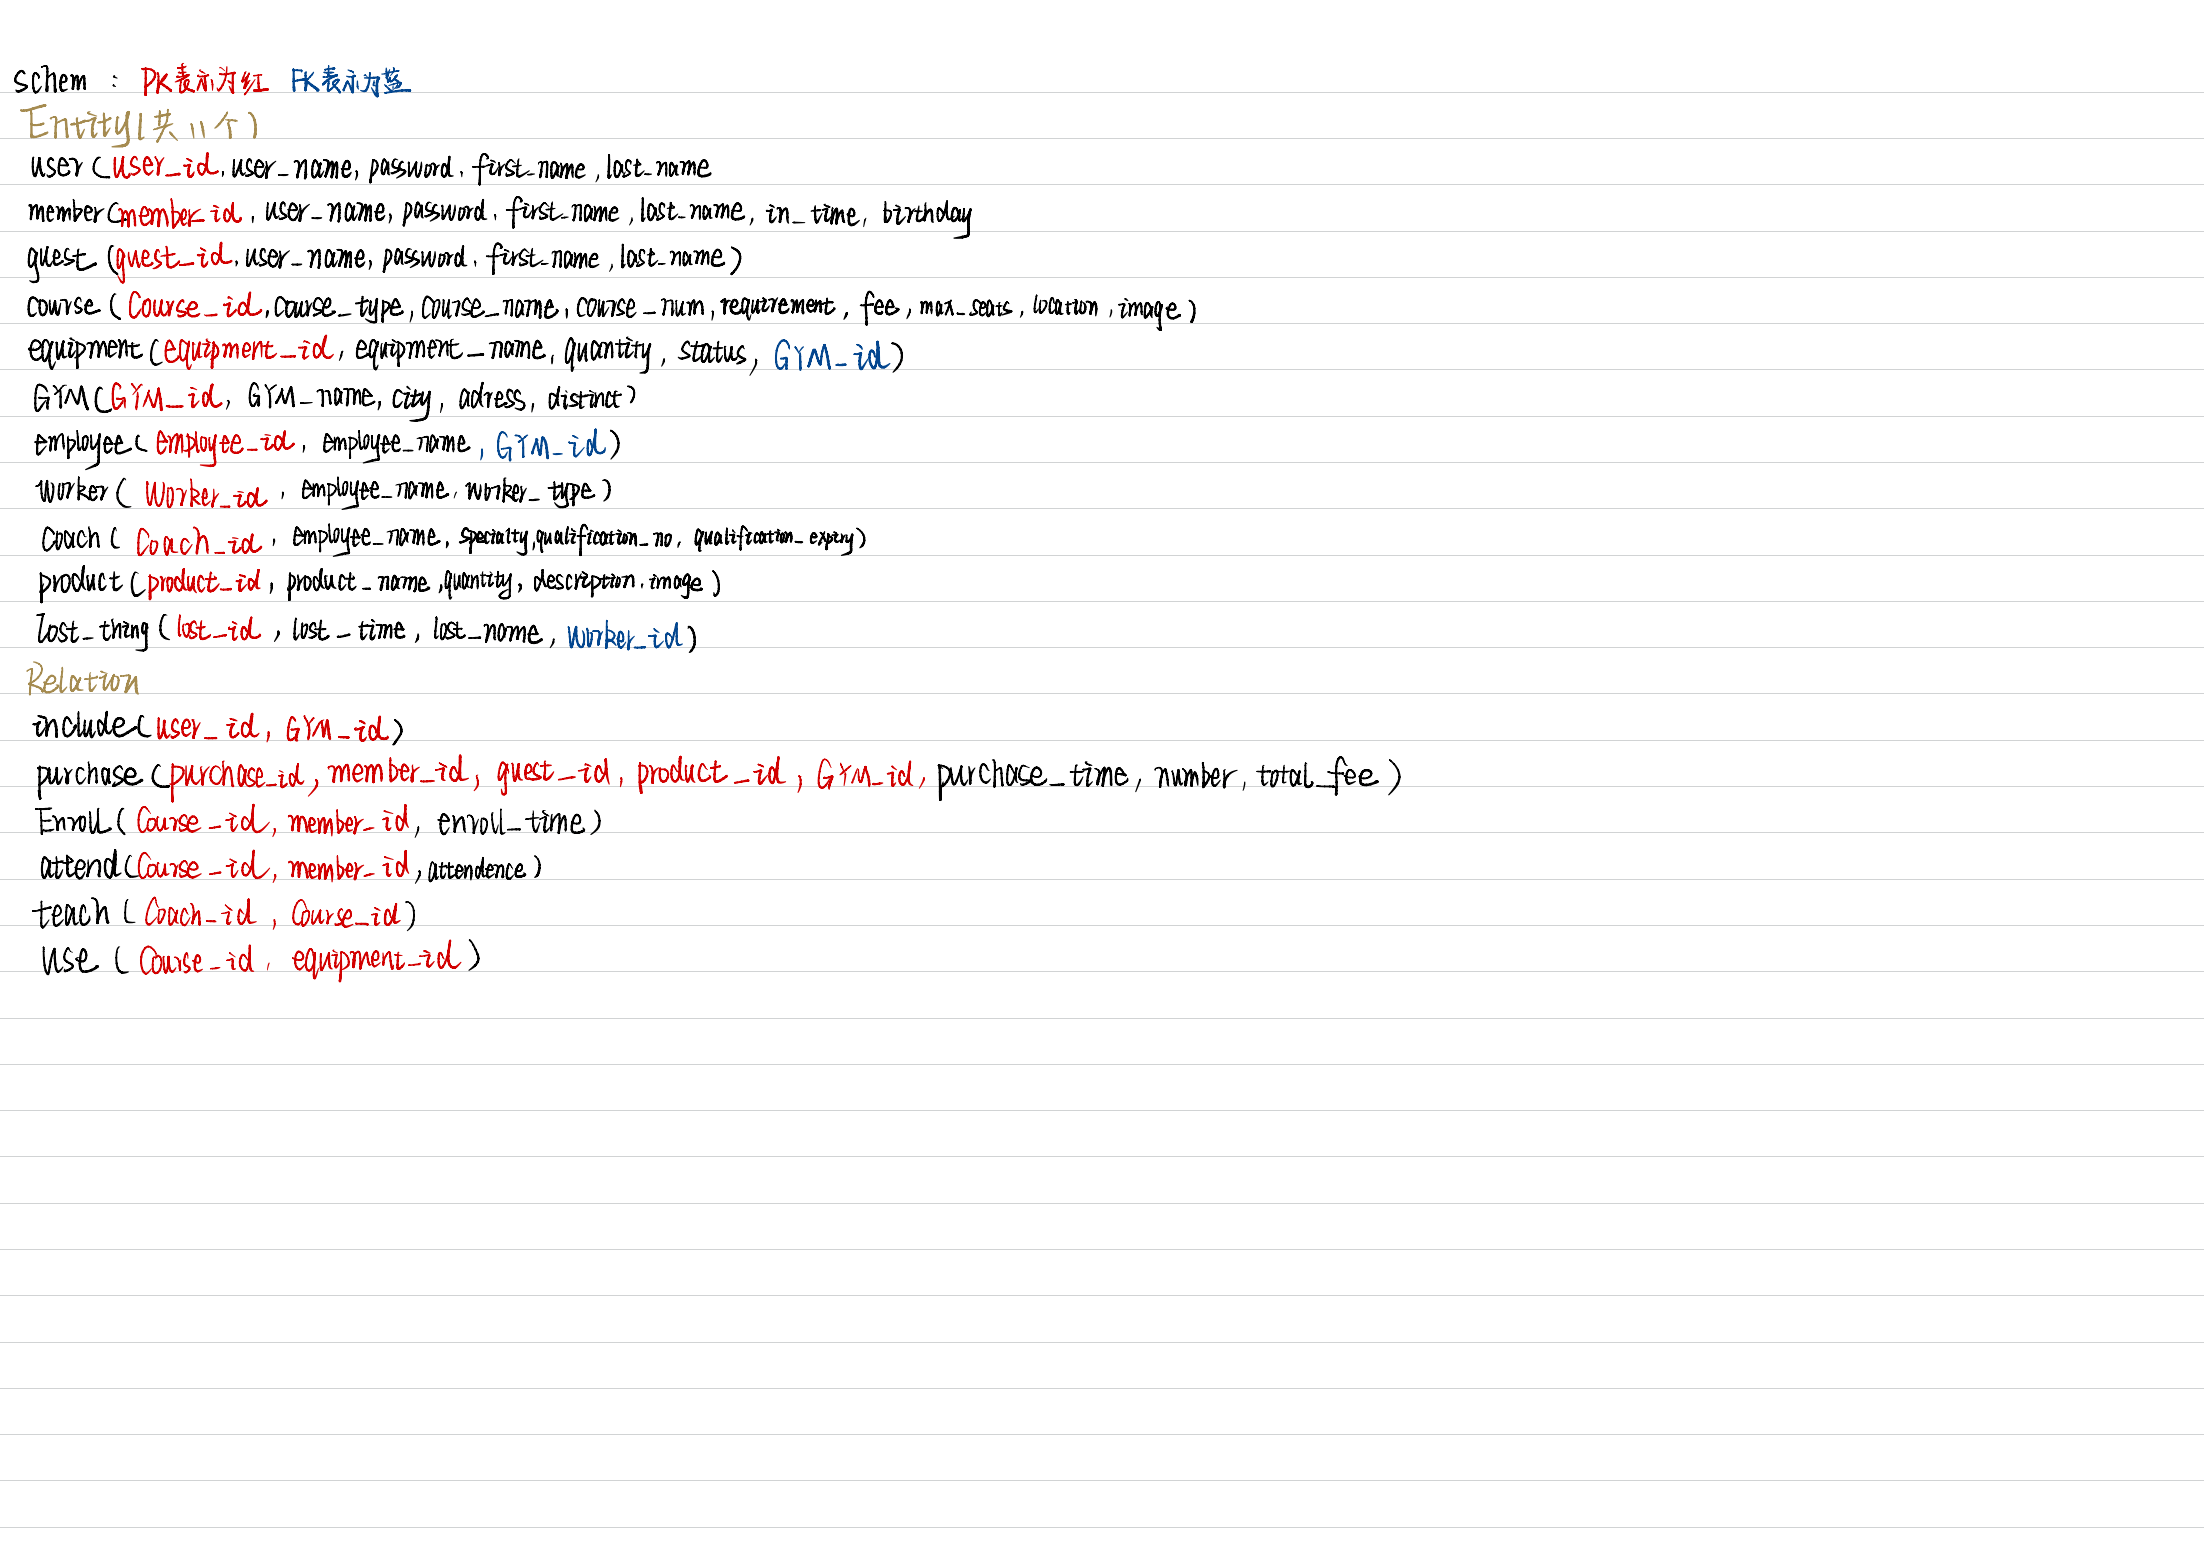 schem : PK表示为红 FK表示为蓝
Entity(共11个)
user(user_id, user_name, password, first_name, last_name
member(member_id, user_name, password, first_name, last_name, in_time, birthday
guest (guest_id, user_name, password, first_name, last_name)
course (course_id, course_type, course_name, course_num, requirement, fee, max_seats, location, image)
equipment(equipment_id, equipment_name, quantity, status, GYM_id)
GYM(GYM_id, GYM_name, city, adress, distinct)
employee(employee_id, employee_name, GYM_id)
worker( worker_id, employee_name, worker_type)
Coach( Coach_id, employee_name, specialty, qualification_no, qualification_expiry)
product(product_id, product_name, quantity, description, image)
lost_thing(lost_id, lost_time, lost_name, worker_id)
Relation
include(user_id, GYM_id)
purchase(purchase_id, member_id, guest_id, product_id, GYM_id, purchase_time, number, total_fee)
Enroll(Course_id, member_id, enroll_time)
attend(Course_id, member_id, attendence)
teach(Coach_id, Course_id)
use (Course_id, equipment_id)